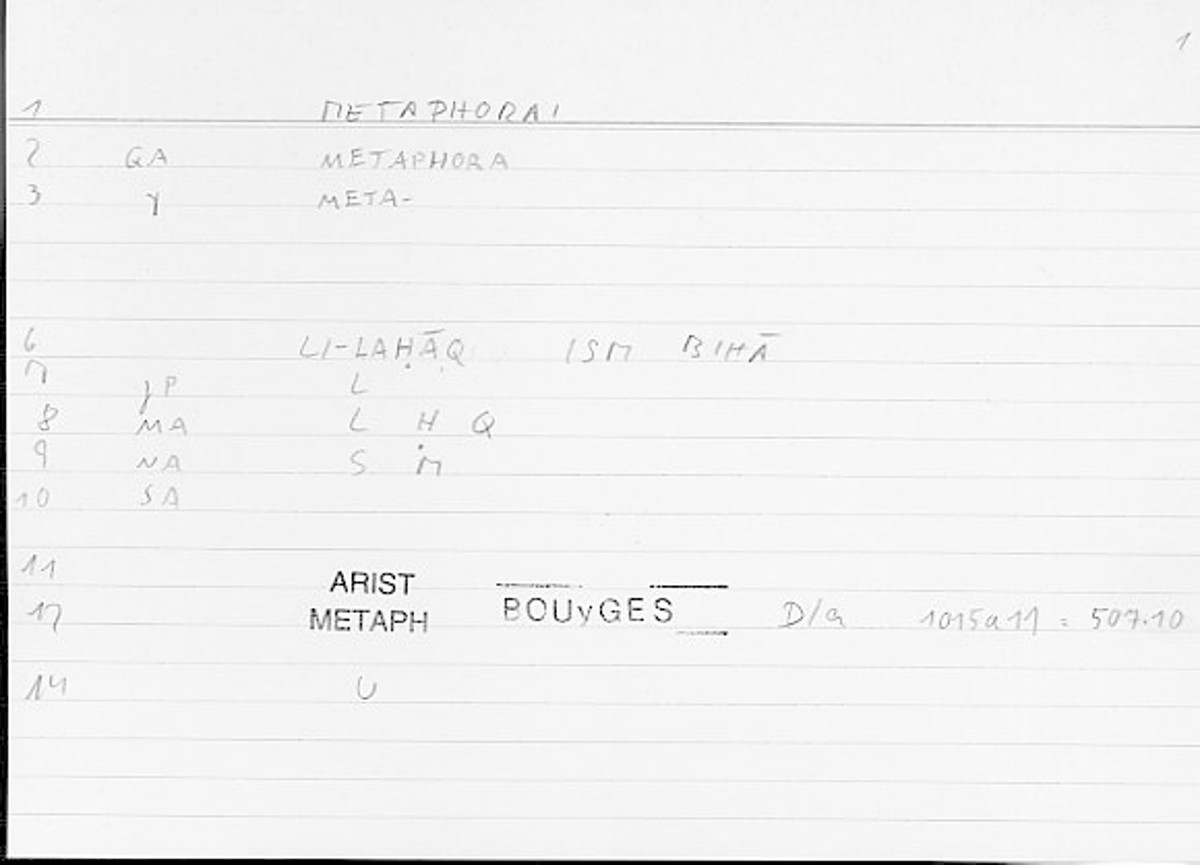 1
1 METAPHORAI
2 GA METAPHORA
3 γ META-
6 LI-LAḤĀQ ISM BIHĀ
7 γP L
8 MA L Ḥ Q
9 NA S M
10 SA
11 ARIST
12 METAPH BOUyGES D/a 1015a11 = 507.10
14 U